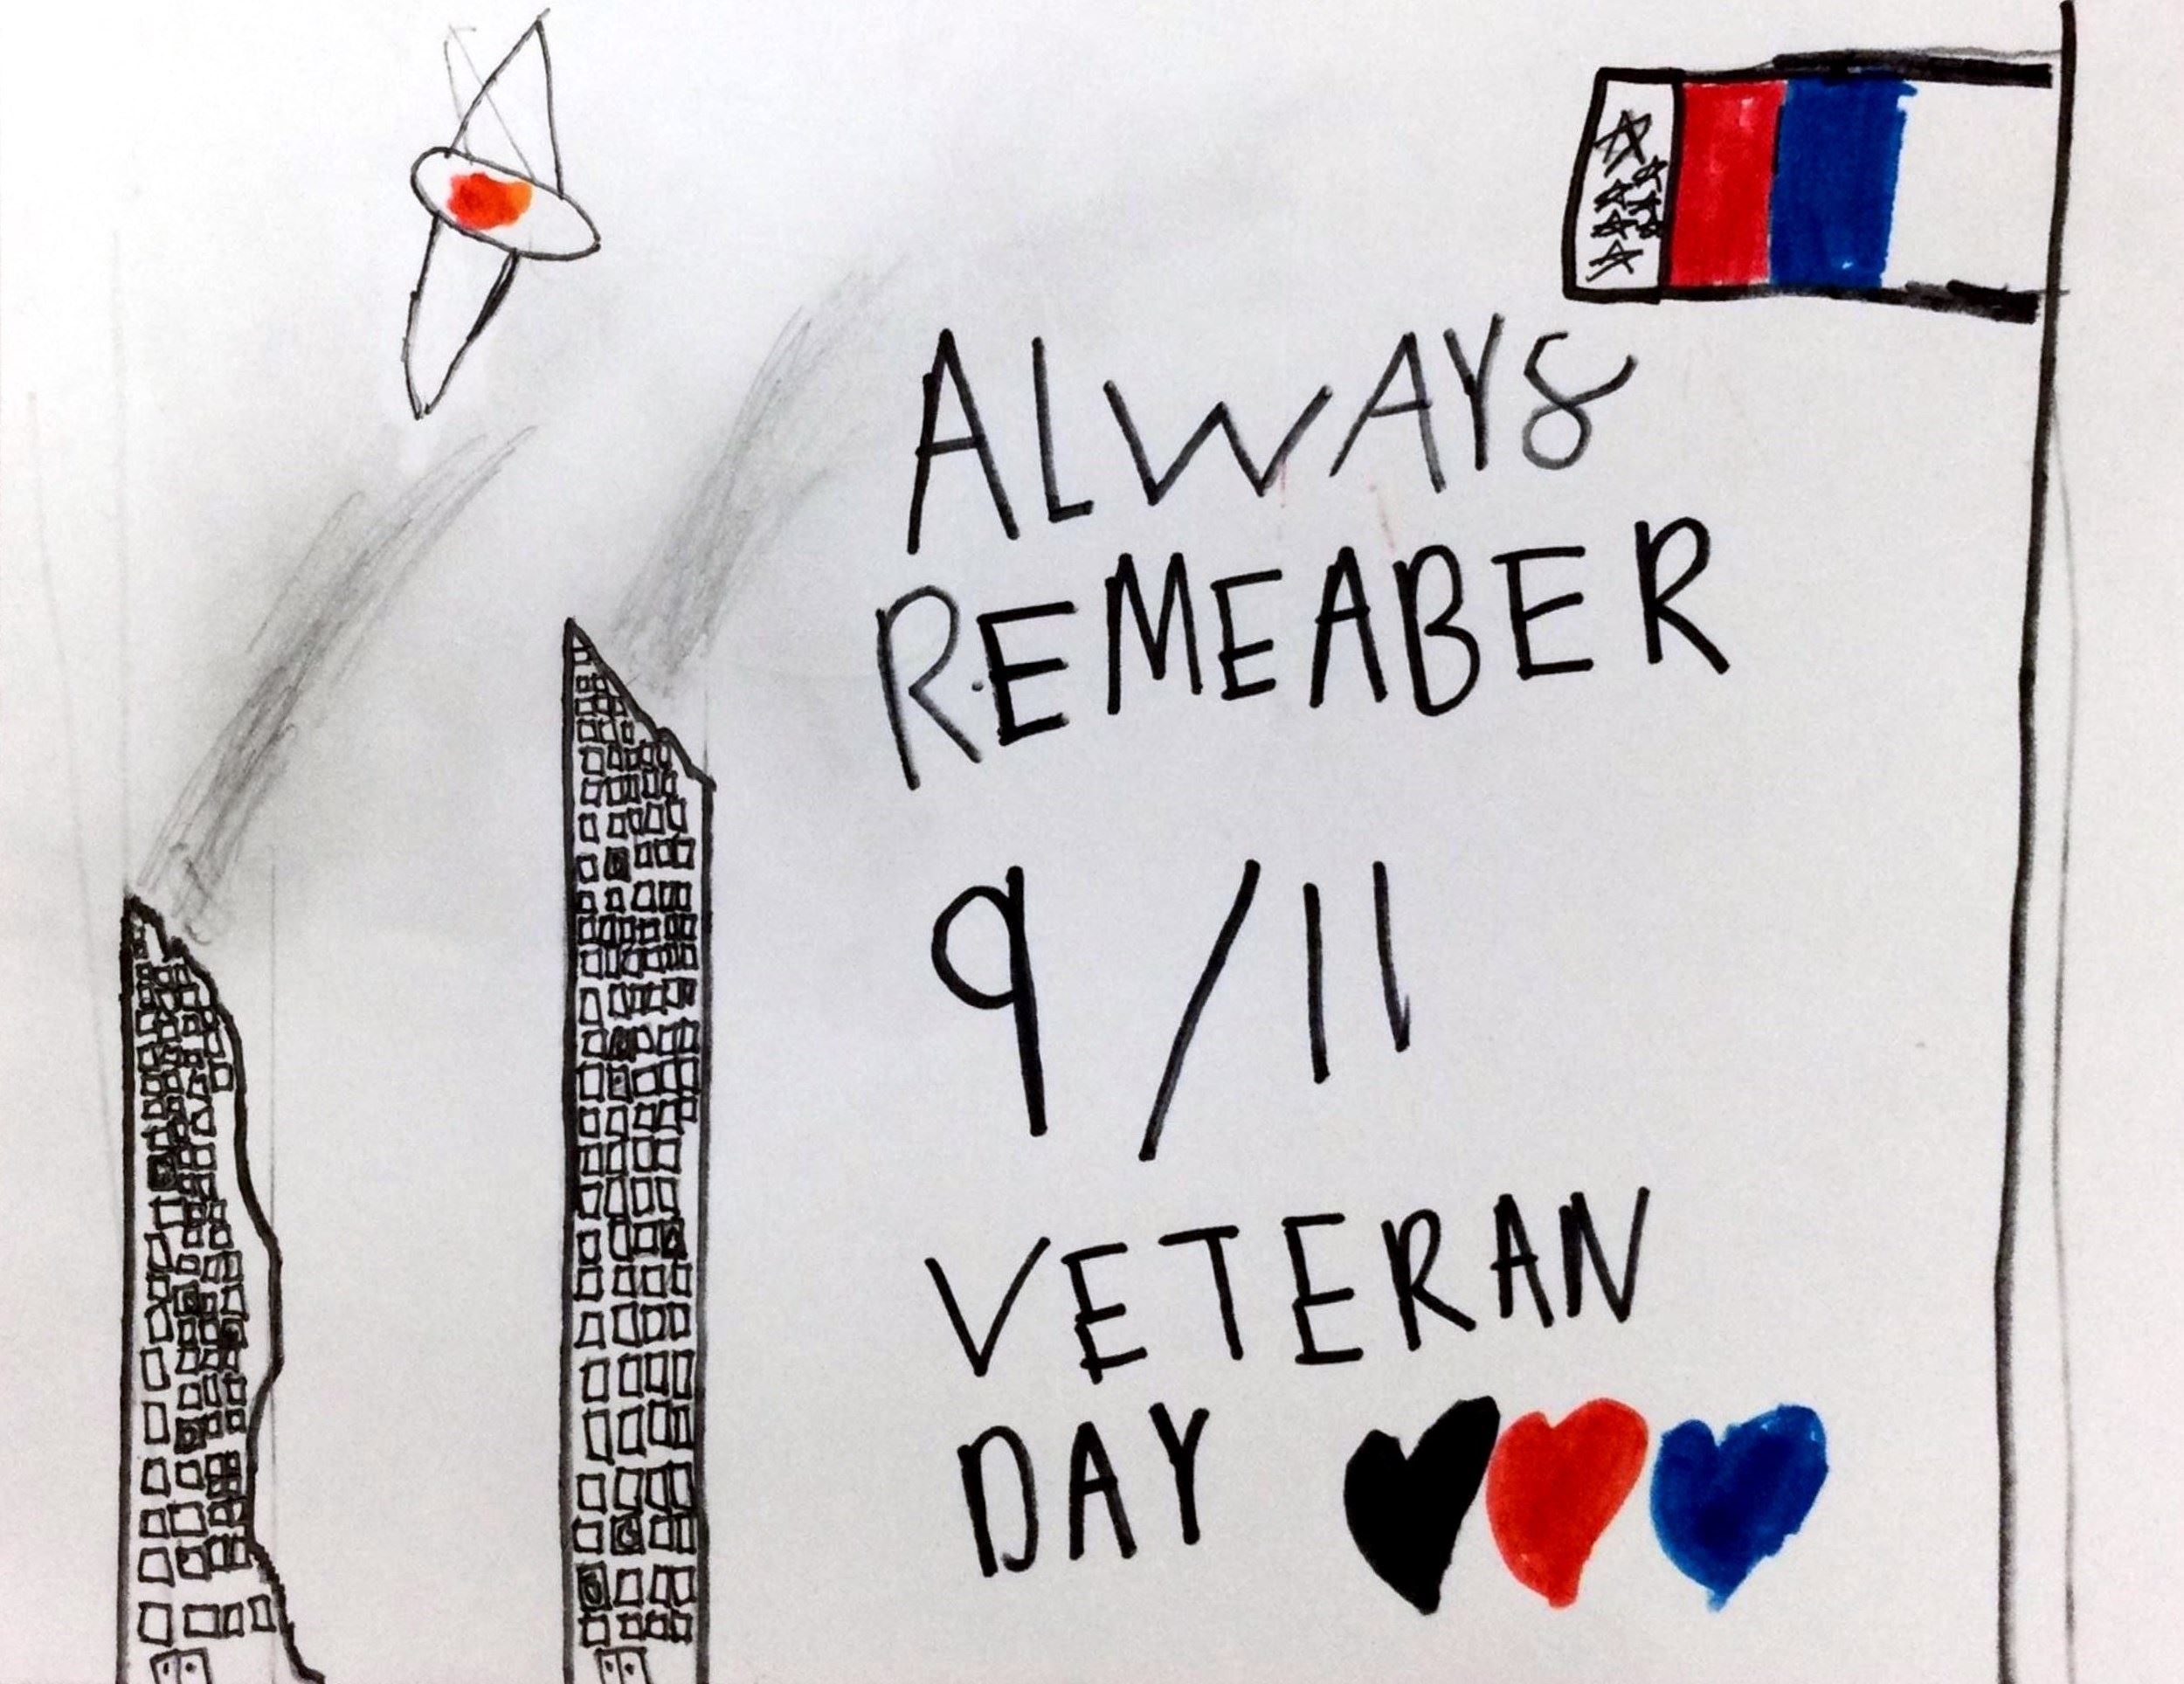 ALWAYS
REMEABER
9/11
VETERAN
DAY